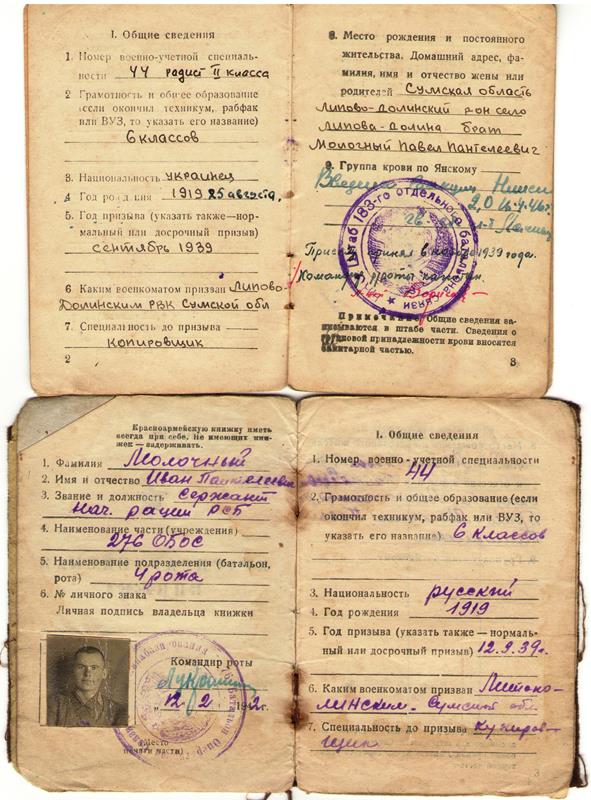 I. Общие сведения
1. Номер военно-учетной специаль-
ности 44 радист II класса
2 Грамотность и общее образование
(если окончил техникум, рабфак
или ВУЗ, то указать его название)
6 классов
3. Национальность украинец
4 Год рождения 1919 25 августа,
5. Год призыва (указать также—нор-
мальный или досрочный призыв)
сентябрь 1939
6 Каким военкоматом призван Липово-
Долинским РВК Сумской обл
7. Специальность до призыва
копировщик
2
8. Место рождения и постоянного
жительства. Домашний адрес, фа-
милия, имя и отчество жены или
родителей Сумская область
Липово-Долинский р-он село
Липова-Долина брат
Молочный Павел Пантелеевич
9. Группа крови по Янскому
Штаб 183-го отдельного батальона связи
Присягу принял в 1939 года.
Командир роты капитан
Примечание. Общие сведения за-
писываются в штабе части. Сведения о
групповой принадлежности крови вносятся
санитарной частью.
3
Красноармейскую книжку иметь
всегда при себе. Не имеющих кни-
жек — задерживать.
1. Фамилия Молочный
2. Имя и отчество Иван Пантелееви
3. Звание и должность сержант
Нач. рации РСБ
4. Наименование части (учреждения)
276 ОБОС
5. Наименование подразделения (батальон,
рота) 4 рота
6. № личного знака
Личная подпись владельца книжки
Командир роты
„12" 2 1942г.
(Место
печати части)
I. Общие сведения
1. Номер военно-учетной специальности
44
2. Грамотность и общее образование (если
окончил техникум, рабфак или ВУЗ, то
указать его название) 6 классов
3. Национальность русский
4. Год рождения 1919
5. Год призыва (указать также — нормаль-
ный или досрочный призыв) 12.9.39г.
6. Каким военкоматом призван
Сумской обл.
7. Специальность до призыва
3